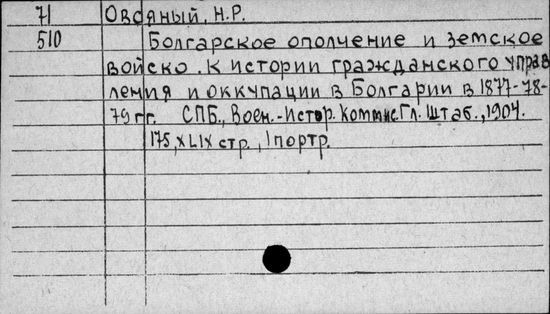 71 Овсяный, Н.Р.
510 Болгарское ополчение и земское
войско. К истории гражданского управ
ления и оккупации в Болгарии в 1877-78-
79 гг. СПБ., Воен.-Истор. Комис. Гл. Штаб., 1904.
175, XLIX стр., 1 портр.